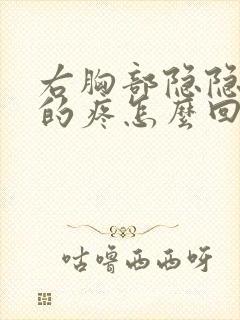 右胸部隐隐
的疼怎麼回
咕噜西西呀